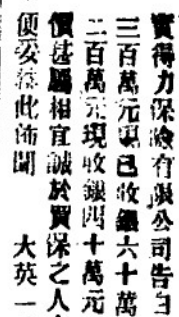 寳得力保險有限公司告白
三百萬元現已收銀六十萬
二百萬元現收銀四十萬元
價甚屬相宜誠於買保之人
便安 此佈聞 大英一